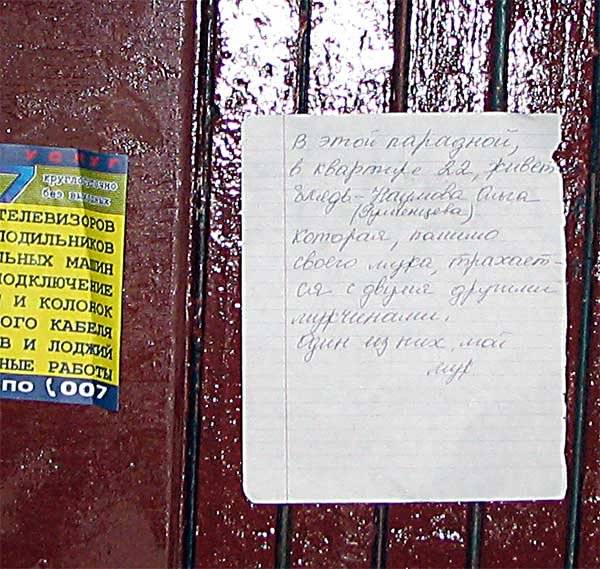 УСЛУГ
7 круглосуточно
без выходных
ТЕЛЕВИЗОРОВ
ЛОДИЛЬНИКОВ
ЛЬНЫХ МАШИН
ПОДКЛЮЧЕНИЕ
И КОЛОНОК
ОГО КАБЕЛЯ
В И ЛОДЖИЙ
НЫЕ РАБОТЫ
ПО 007
В этой парадной,
в квартире 22, живет
блядь - Наумова Ольга
(Урменцева)
которая, помимо
своего мужа, трахает-
ся с двумя другими
мужчинами.
Один из них мой
муж